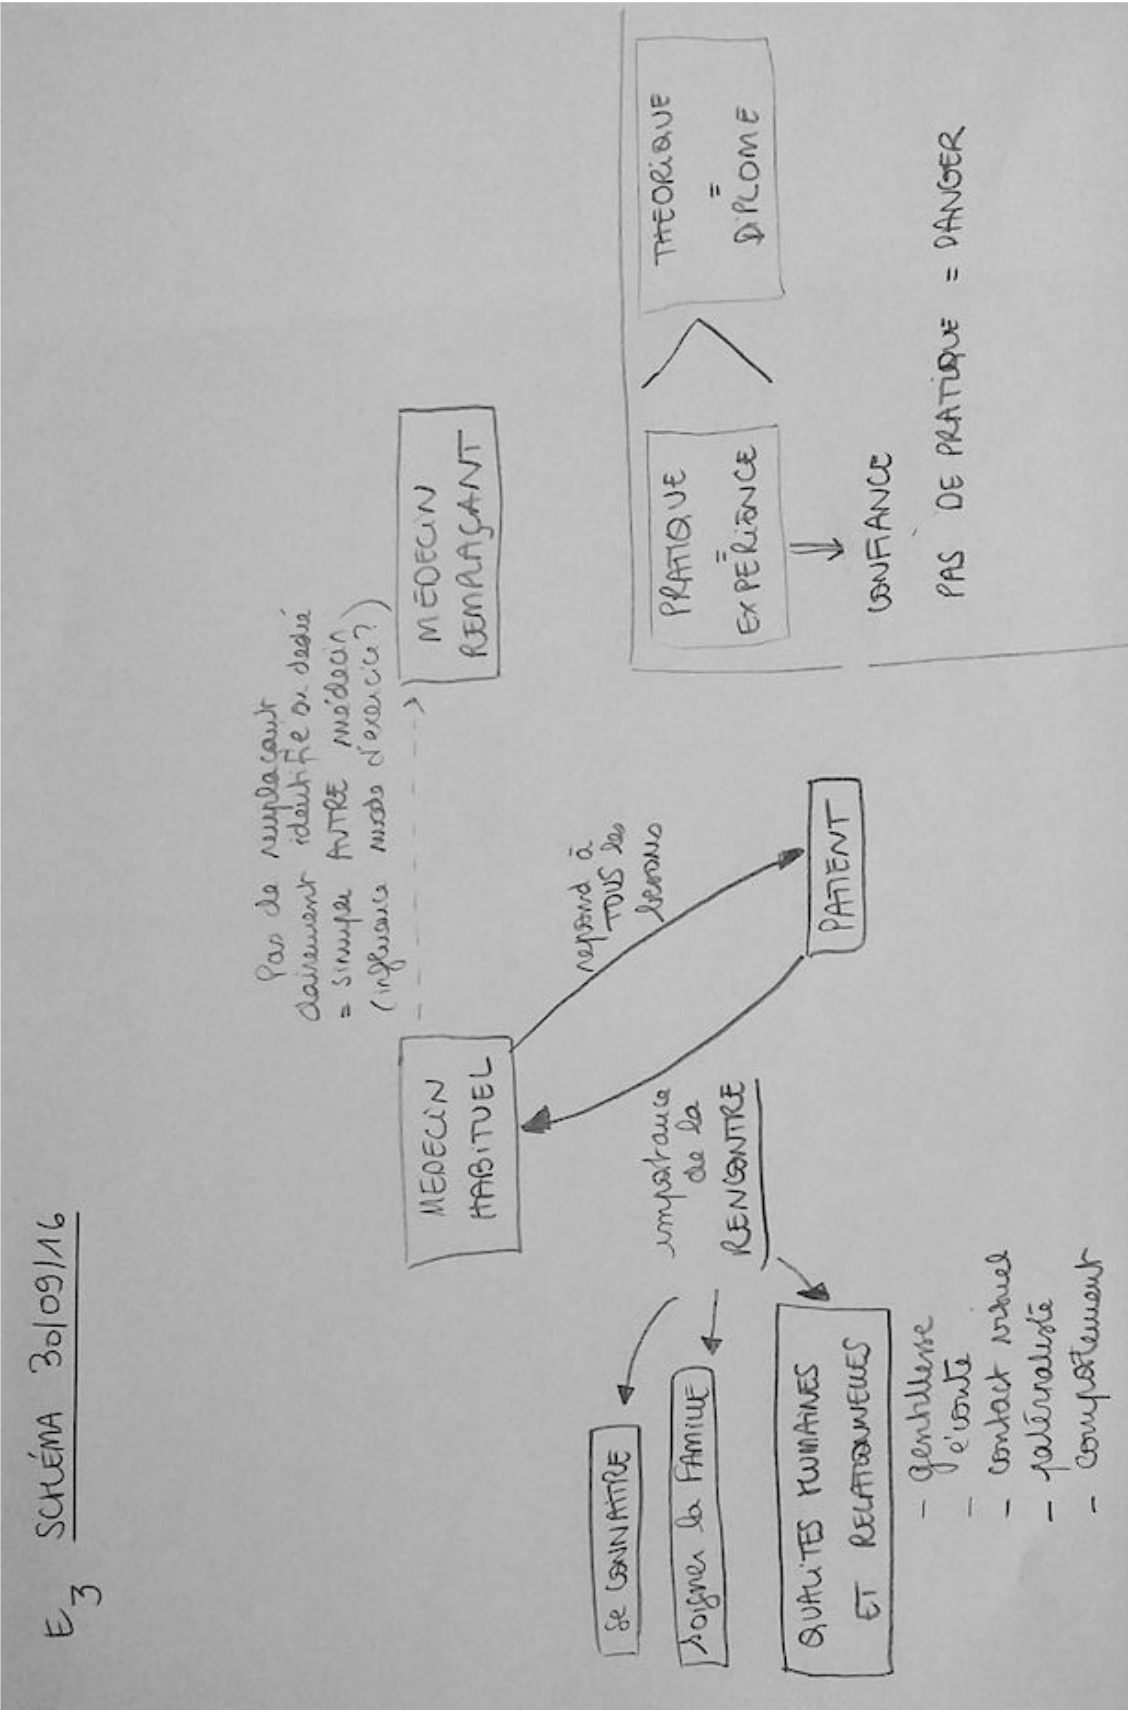 E3 SCHÉMA 30/09/16
Pas de remplaçant
clairement identifié ou dédié
= simple AUTRE médecin
(influence mode d'exercice?)
MEDECIN
HABITUEL
MEDECIN
REMPLAÇANT
répond à
TOUS les
besoins
PATIENT
importance
de la
RENCONTRE
Se CONNAÎTRE
Soigner la FAMILLE
QUALITÉS HUMAINES
ET RELATIONNELLES
- gentillesse
- écoute
- contact visuel
- paternaliste
- comportement
PRATIQUE
=
EXPÉRIENCE
>
THÉORIQUE
=
DIPLOME
⇓
CONFIANCE
PAS DE PRATIQUE = DANGER